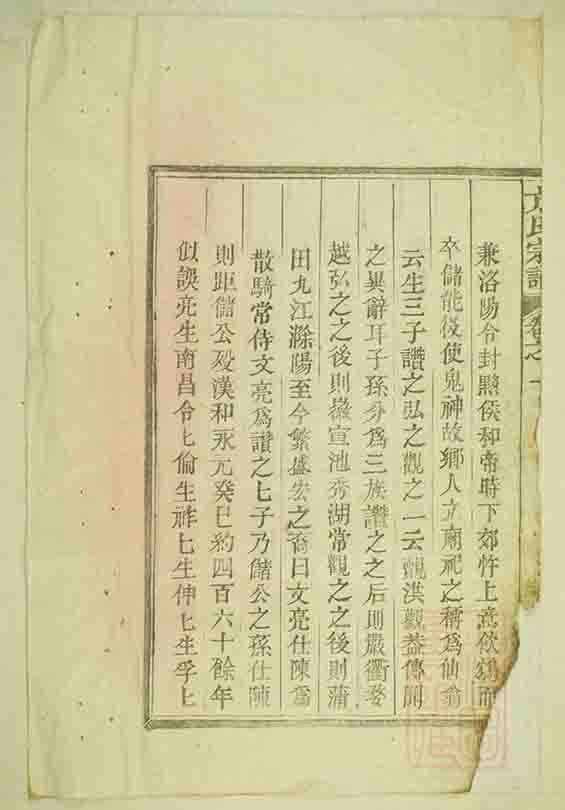 方氏宗譜
卷之
兼洛陽令封黟侯和帝時下郊忤上意飲鴆而
卒儲能役使鬼神故鄉人立廟祀之稱爲仙翁
云生三子讚之弘之觀之一云覿洪觀葢傳聞
之異辭耳子孫分爲三族讚之之后則嚴衢婺
越弘之之後則徽宣池秀湖常觀之之後則蒲
田九江滁陽至今繁盛宏之裔曰文亮仕陳爲
散騎常侍文亮爲讚之七子乃儲公之孫仕陳
則距儲公歿漢和永元癸巳約四百六十餘年
似誤亮生南昌令匕倫生祚匕生伸匕生孚匕